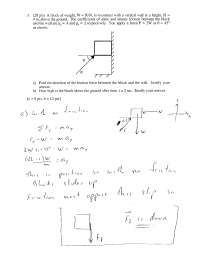 3. (20 pts) A block of weight, W = 80 N, is in contact with a vertical wall at a height, H =
4 m, above the ground. The coefficients of static and kinetic friction between the block
and the wall are μs = and μk = respectively. You apply a force P = 2W at θ = 45°
as shown.
a) Find the direction of the friction force between the block and the wall. Justify your
answer.
b) How high is the block above the ground after time t = 2 sec. Justify your answer.
a) with no friction
ΣFy = may
Py - W = may
2W - W = may
= ay
this is positive so with no friction
Block slides up
Friction must oppose this slip so
Ff is down
Ff